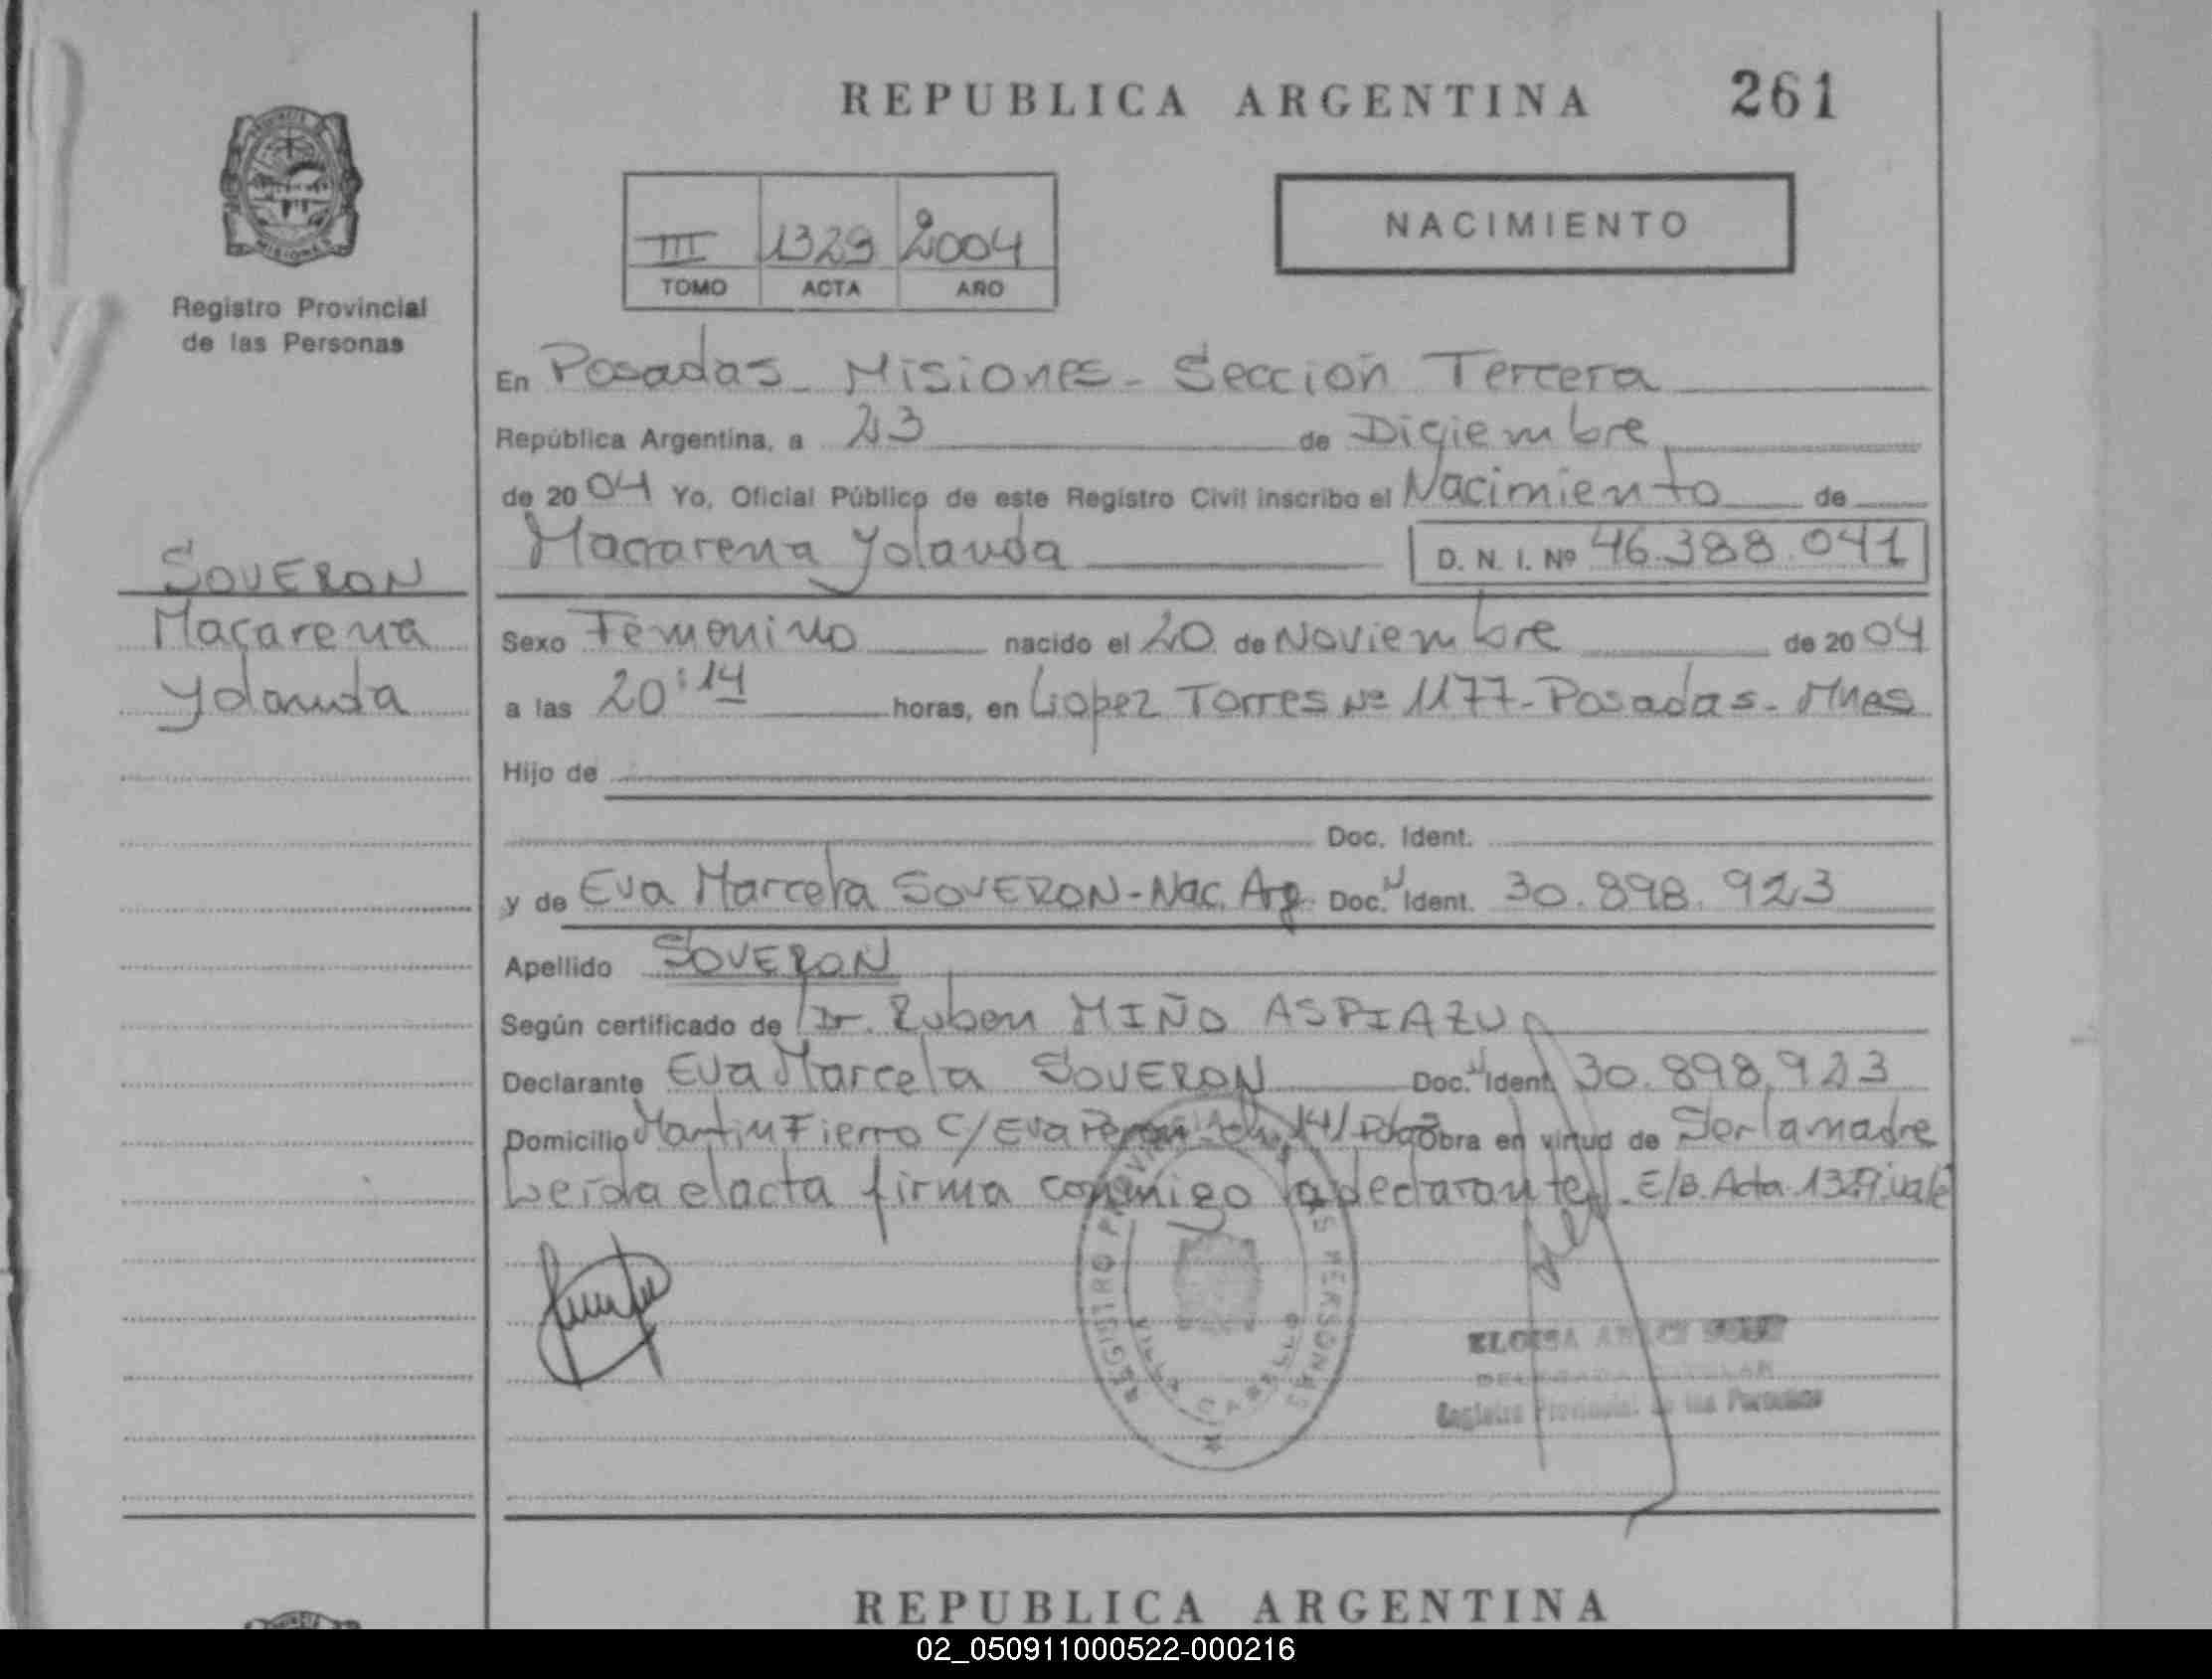 REPUBLICA ARGENTINA 261
NACIMIENTO
III 1329 2004
TOMO ACTA AÑO
Registro Provincial
de las Personas
SOVERON
Macarena
Yolanda
En Posadas - Misiones - Sección Tercera
República Argentina, a 23 de Diciembre
de 2004 Yo, Oficial Público de este Registro Civil inscribo el Nacimiento de
Macarena Yolanda D. N. I. Nº 46.388.041
Sexo Femenino nacido el 20 de Noviembre de 2004
a las 20:14 horas, en López Torres Nº 1177 - Posadas - Mnes
Hijo de
Doc. Ident.
y de Eva Marcela SOVERON - Nac. Arg. Doc. N Ident. 30.898.923
Apellido SOVERON
Según certificado de Dr. Ruben MIÑO ASPIAZU
Declarante Eva Marcela SOVERON Doc. N Ident. 30.898.923
Domicilio Martin Fierro C/ Eva Perón 14/ Obra en virtud de Ser la madre
Leída el acta firma conmigo la declarante. E/B. Acta 1329 vale
REGISTRO PROVINCIAL DE LAS PERSONAS
VILLA CABELLO
ELOISA
Registro Provincial de las Personas
REPUBLICA ARGENTINA
02_050911000522-000216